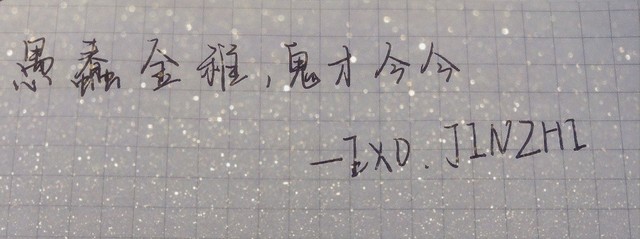 愚蠢金稚,鬼才今今
—IXO.JINZHI